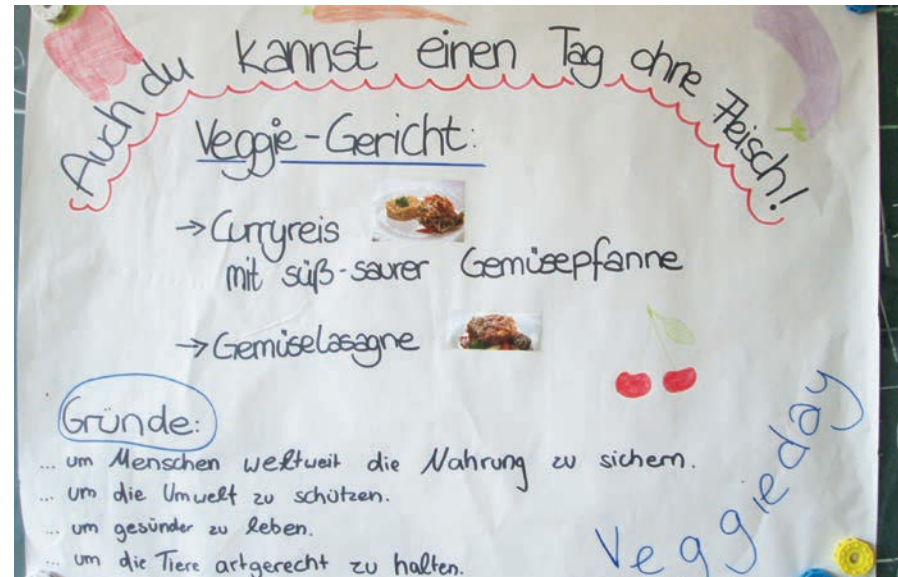 Auch du kannst einen Tag ohne Fleisch!
Veggie-Gericht:
→ Curryreis
mit süß-saurer Gemüsepfanne
→ Gemüselasagne
Gründe:
... um Menschen weltweit die Nahrung zu sichern.
... um die Umwelt zu schützen.
... um gesünder zu leben.
... um die Tiere artgerecht zu halten.
Veggieday